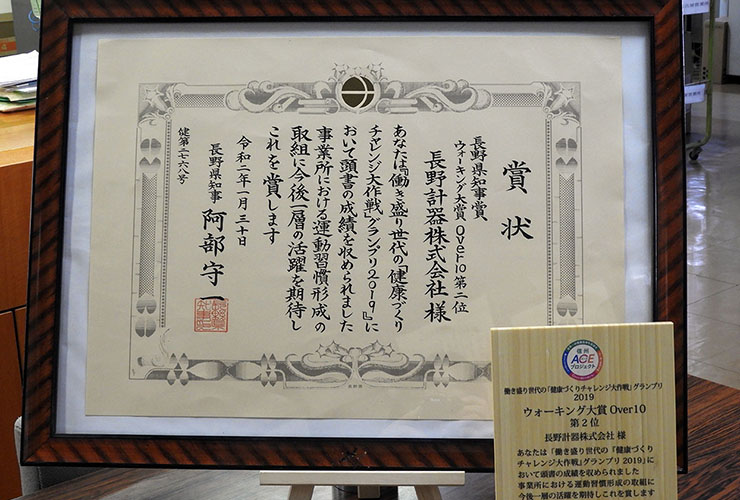 賞状
長野県知事賞
ウォーキング大賞Over10第二位
長野計器株式会社 様
あなたは『働き盛り世代の「健康づくり
チャレンジ大作戦」グランプリ2019』に
おいて頭書の成績を収められました
事業所における運動習慣形成の
取組に今後一層の活躍を期待し
これを賞します
令和二年一月三十日
長野県知事 阿部守一
健第二七六八号
信州
ACE
プロジェクト
働き盛り世代の「健康づくりチャレンジ大作戦」グランプリ
2019
ウォーキング大賞 Over10
第2位
長野計器株式会社 様
あなたは「働き盛り世代の「健康づくり
チャレンジ大作戦」グランプリ 2019」に
おいて頭書の成績を収められました
事業所における運動習慣形成の取組に
今後一層の活躍を期待しこれを賞します